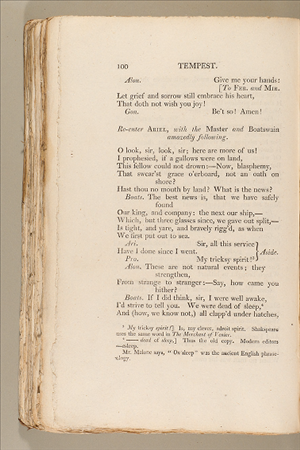 100 TEMPEST.
Alon. Give me your hands:
[To Fer. and Mir.
Let grief and sorrow still embrace his heart,
That doth not wish you joy!
Gon. Be't so! Amen!
Re-enter Ariel, with the Master and Boatswain
amazedly following.
O look, sir, look, sir; here are more of us!
I prophesied, if a gallows were on land,
This fellow could not drown:—Now, blasphemy,
That swear'st grace o'erboard, not an oath on
shore?
Hast thou no mouth by land? What is the news?
Boats. The best news is, that we have safely
found
Our king, and company: the next our ship,—
Which, but three glasses since, we gave out split,—
Is tight, and yare, and bravely rigg'd, as when
We first put out to sea.
Ari. Sir, all this service
Have I done since I went. } Aside.
Pro. My tricksy spirit!³
Alon. These are not natural events; they
strengthen,
From strange to stranger:—Say, how came you
hither?
Boats. If I did think, sir, I were well awake,
I'd strive to tell you. We were dead of sleep,⁴
And (how, we know not,) all clapp'd under hatches,
³ My tricksy spirit!] Is, my clever, adroit spirit. Shakspeare
uses the same word in The Merchant of Venice.
⁴ —— dead of sleep,] Thus the old copy. Modern editors
—asleep.
Mr. Malone says, "On sleep" was the ancient English phrase-
ology